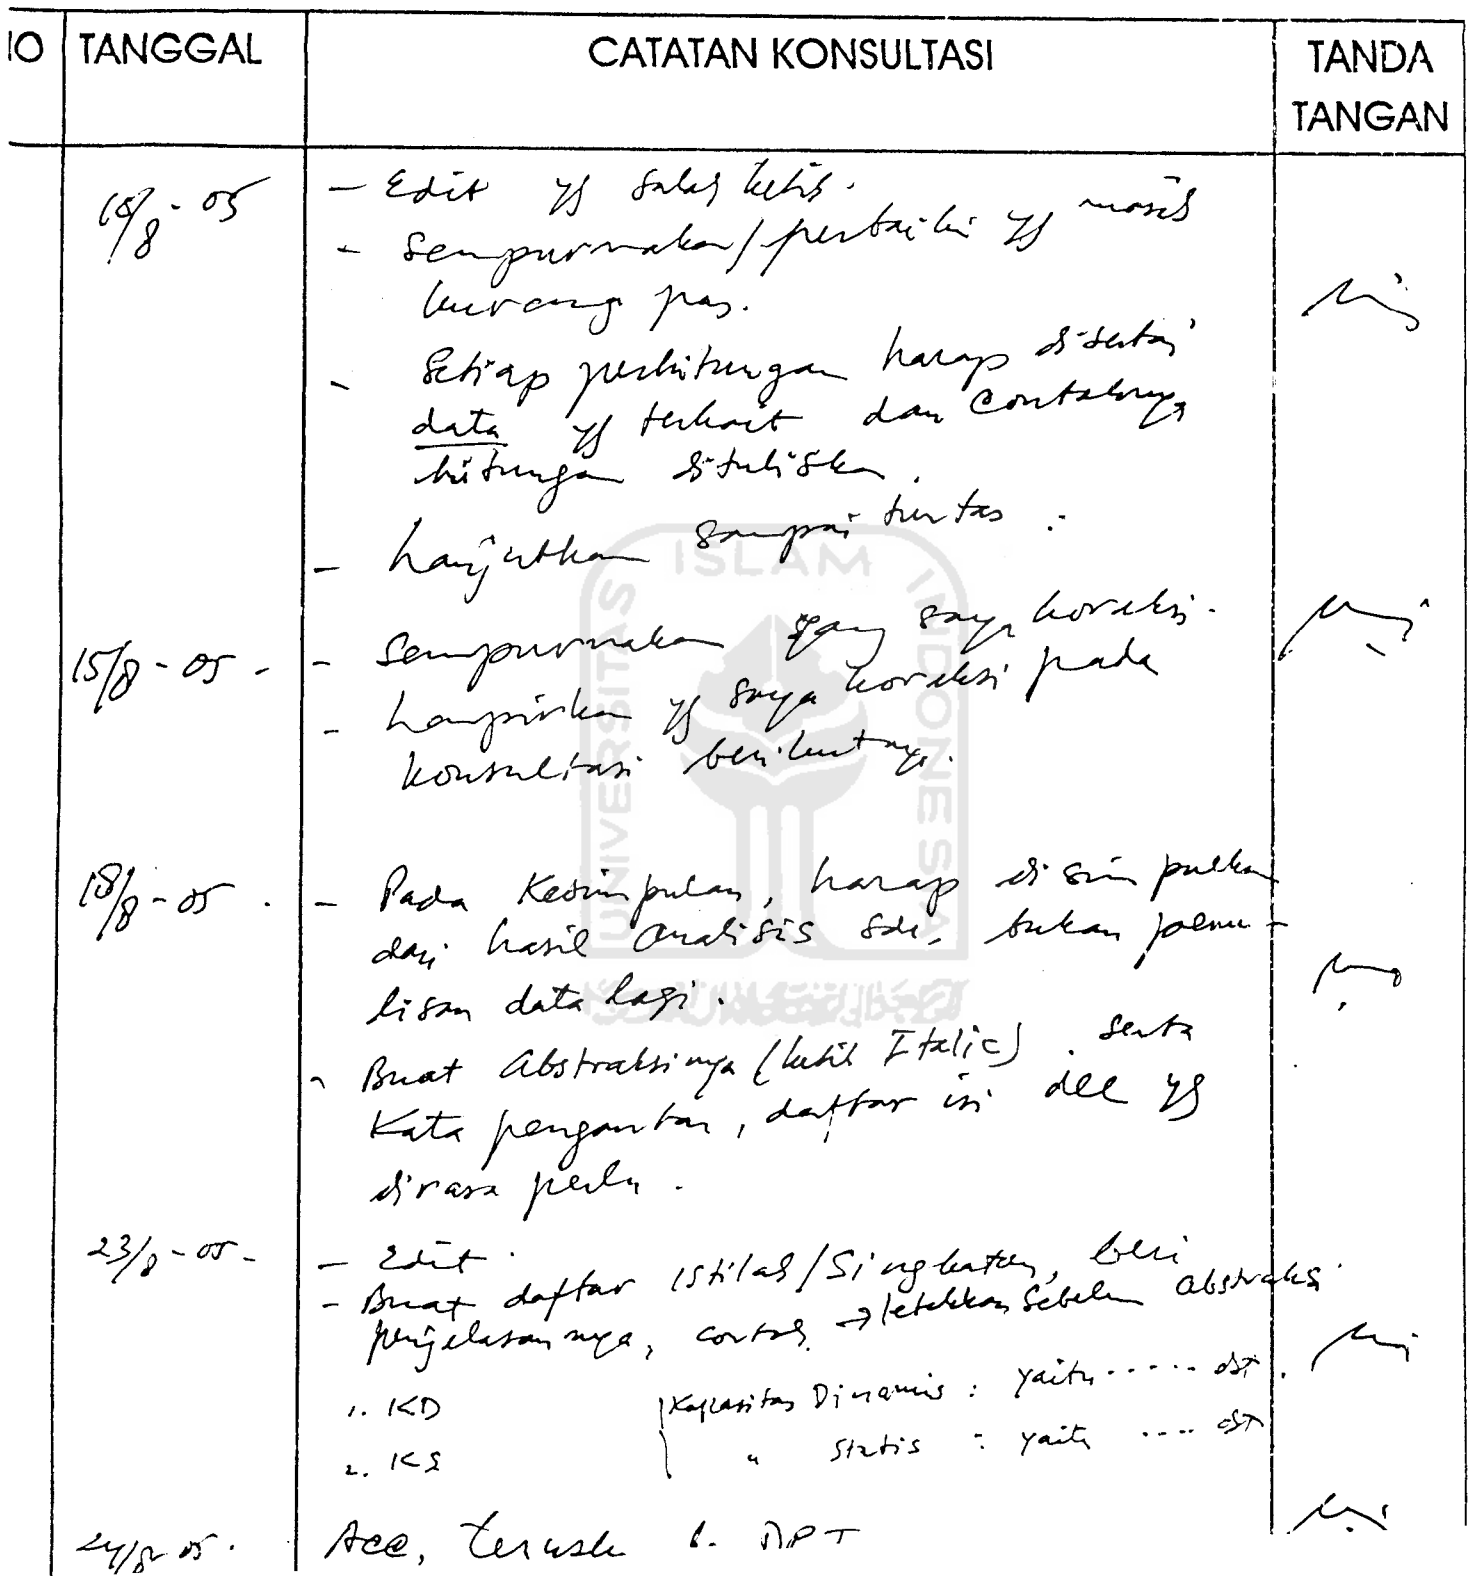 NO TANGGAL CATATAN KONSULTASI TANDA TANGAN
10/8-05 - Edit yg salah ketik.
- Sempurnakan/perbaiki yg masih
kurang pas.
- Setiap perhitungan harap disertai
data yg terkait dan contohnya
hitungan dituliskan.
- Lanjutkan sampai tuntas.
15/8-05 - - Sempurnakan yang saya koreksi.
- Lampirkan yg saya koreksi pada
konsultasi berikutnya.
18/8-05. - Pada Kesimpulan, harap disimpulkan
dari hasil analisis sdr, bukan penu-
lisan data lagi.
- Buat Abstraksinya (ketik Italic). serta
Kata pengantar, daftar isi dll yg
dirasa perlu.
23/8-05- - Edit.
- Buat daftar istilah/Singkatan, beri
penjelasannya, contoh → letakkan sebelum abstraksi
1. KD Kapasitas Dinamis : yaitu ..... dst.
2. KS " Statis : yaitu .... dst
24/8-05. Acc, teruske
UNIVERSITAS ISLAM INDONESIA